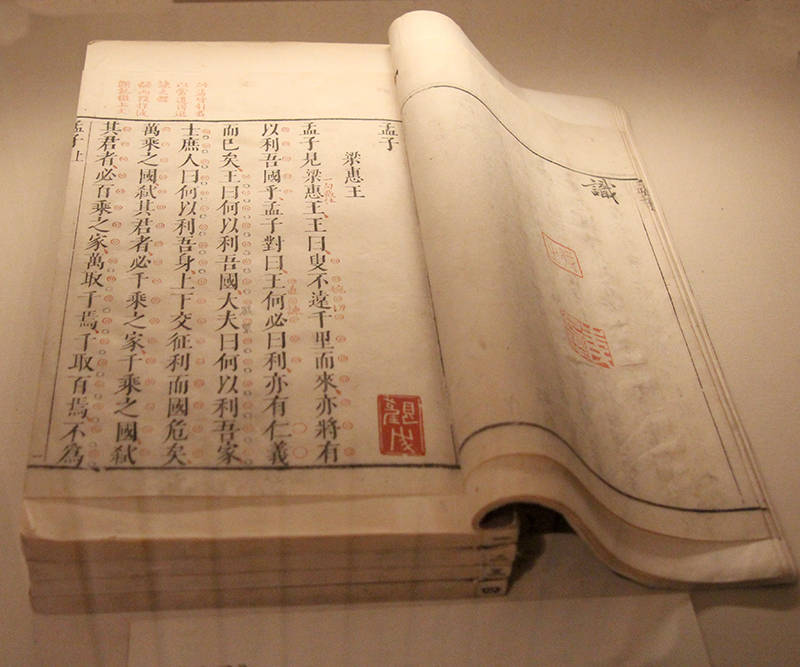 識
孟子
梁惠王
孟子見梁惠王、王曰叟不遠千里而來、亦將有
以利吾國乎、孟子對曰、王何必曰利、亦有仁義
而已矣、王曰何以利吾國、大夫曰何以利吾家
士庶人曰何以利吾身、上下交征利而國危矣、
萬乘之國弒其君者、必千乘之家、千乘之國弒
其君者、必百乘之家、萬取千焉、千取百焉、不為、
孟子上
一
二
三
四